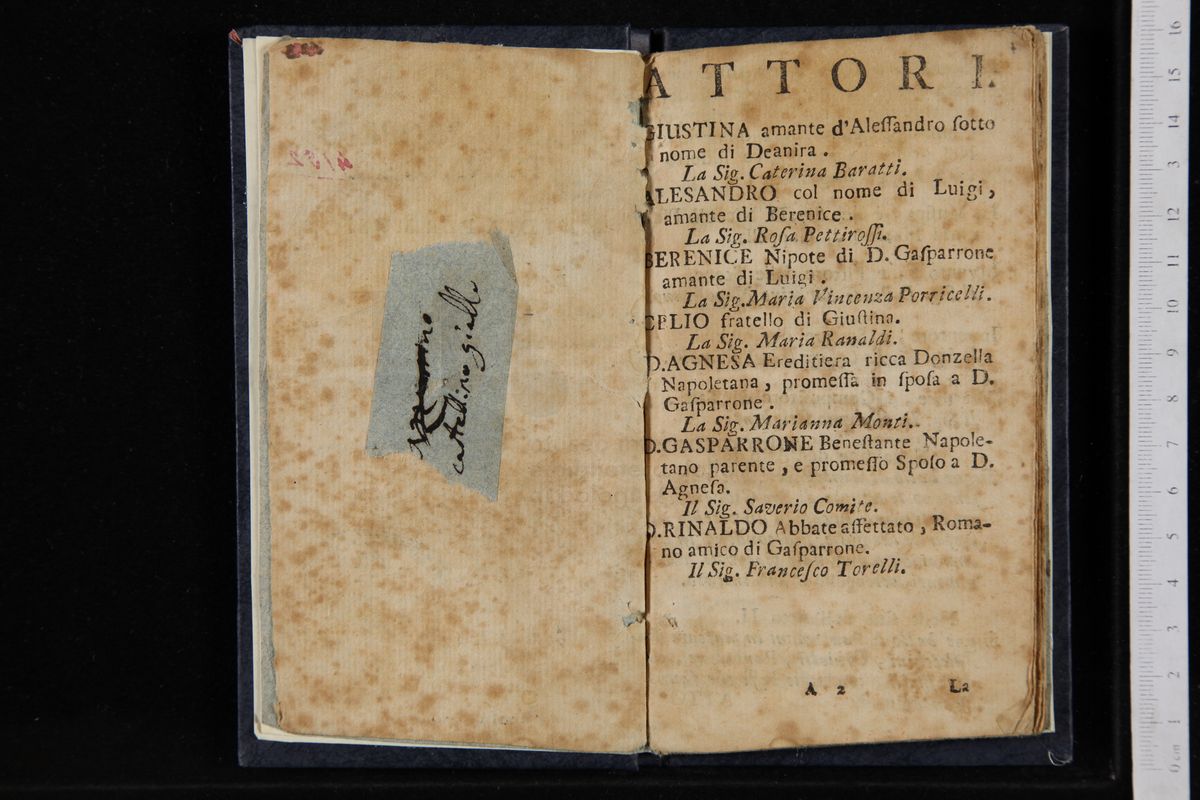 cartellino giallo
ATTORI.
GIUSTINA amante d'Aleſſandro ſotto
nome di Deanira.
La Sig. Caterina Baratti.
ALESANDRO col nome di Luigi,
amante di Berenice.
La Sig. Roſa Pettiroſſi.
BERENICE Nipote di D. Gaſparrone
amante di Luigi.
La Sig. Maria Vincenza Porricelli.
CELIO fratello di Giuſtina.
La Sig. Maria Ranaldi.
D.AGNESA Ereditiera ricca Donzella
Napoletana, promeſſa in ſpoſa a D.
Gaſparrone.
La Sig. Marianna Monti.
D.GASPARRONE Beneſtante Napole-
tano parente, e promeſſo Spoſo a D.
Agneſa.
Il Sig. Saverio Comite.
D.RINALDO Abbate affettato, Roma-
no amico di Gaſparrone.
Il Sig. Franceſco Torelli.
A 2 La
0 cm 1 2 3 4 5 6 7 8 9 10 11 12 13 14 15 16